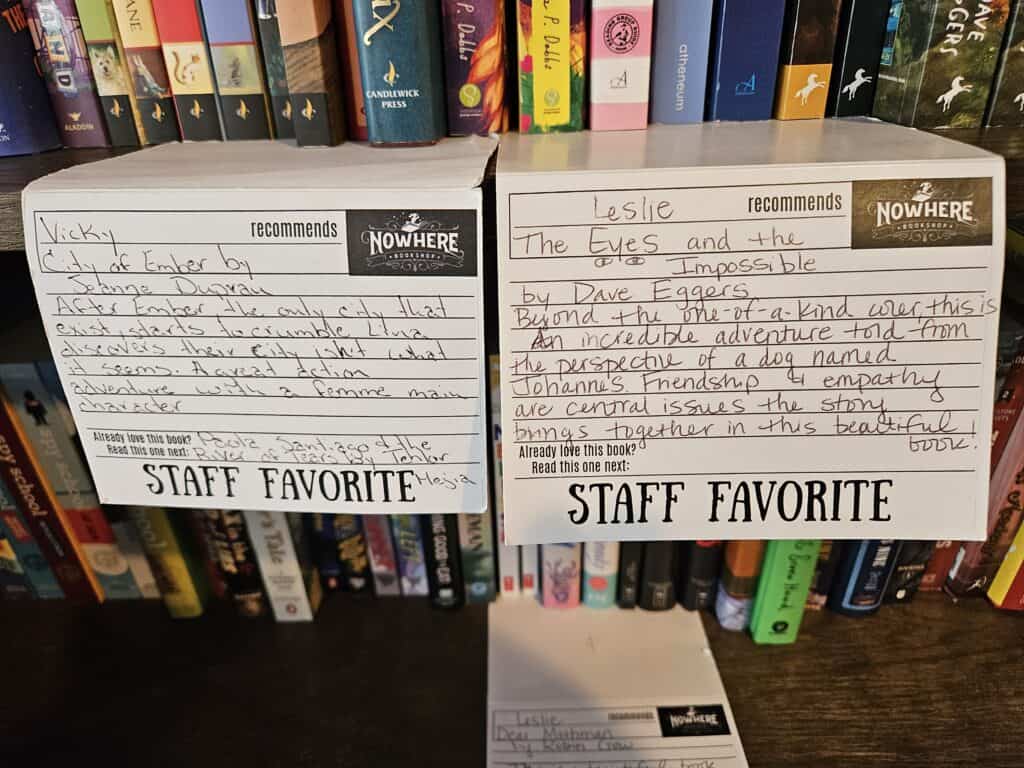 ALADDIN
CANDLEWICK
PRESS
P. Dabbs
P. Dabbs
atheneum
DAVE
EGGERS
Vicky recommends
NOWHERE
BOOKSHOP
City of Ember by
Jeanne Duprau
After Ember the only city that
exist, starts to crumble, Lina
discovers their city isn't what
it seems. A great action
adventure with a femme main
character
Already love this book?
Read this one next:
Paola Santiago & the
River of Tears by Tehlor
Mejia
STAFF FAVORITE
Leslie recommends
NOWHERE
BOOKSHOP
The Eyes and the
Impossible
by Dave Eggers
Beyond the one-of-a-kind cover, this is
An incredible adventure told from
the perspective of a dog named
Johannes. Friendship & empathy
are central issues the story
brings together in this beautiful
book!
Already love this book?
Read this one next:
STAFF FAVORITE
Spy School
Leslie recommends
NOWHERE
Dear Mothman
by Robin Gow